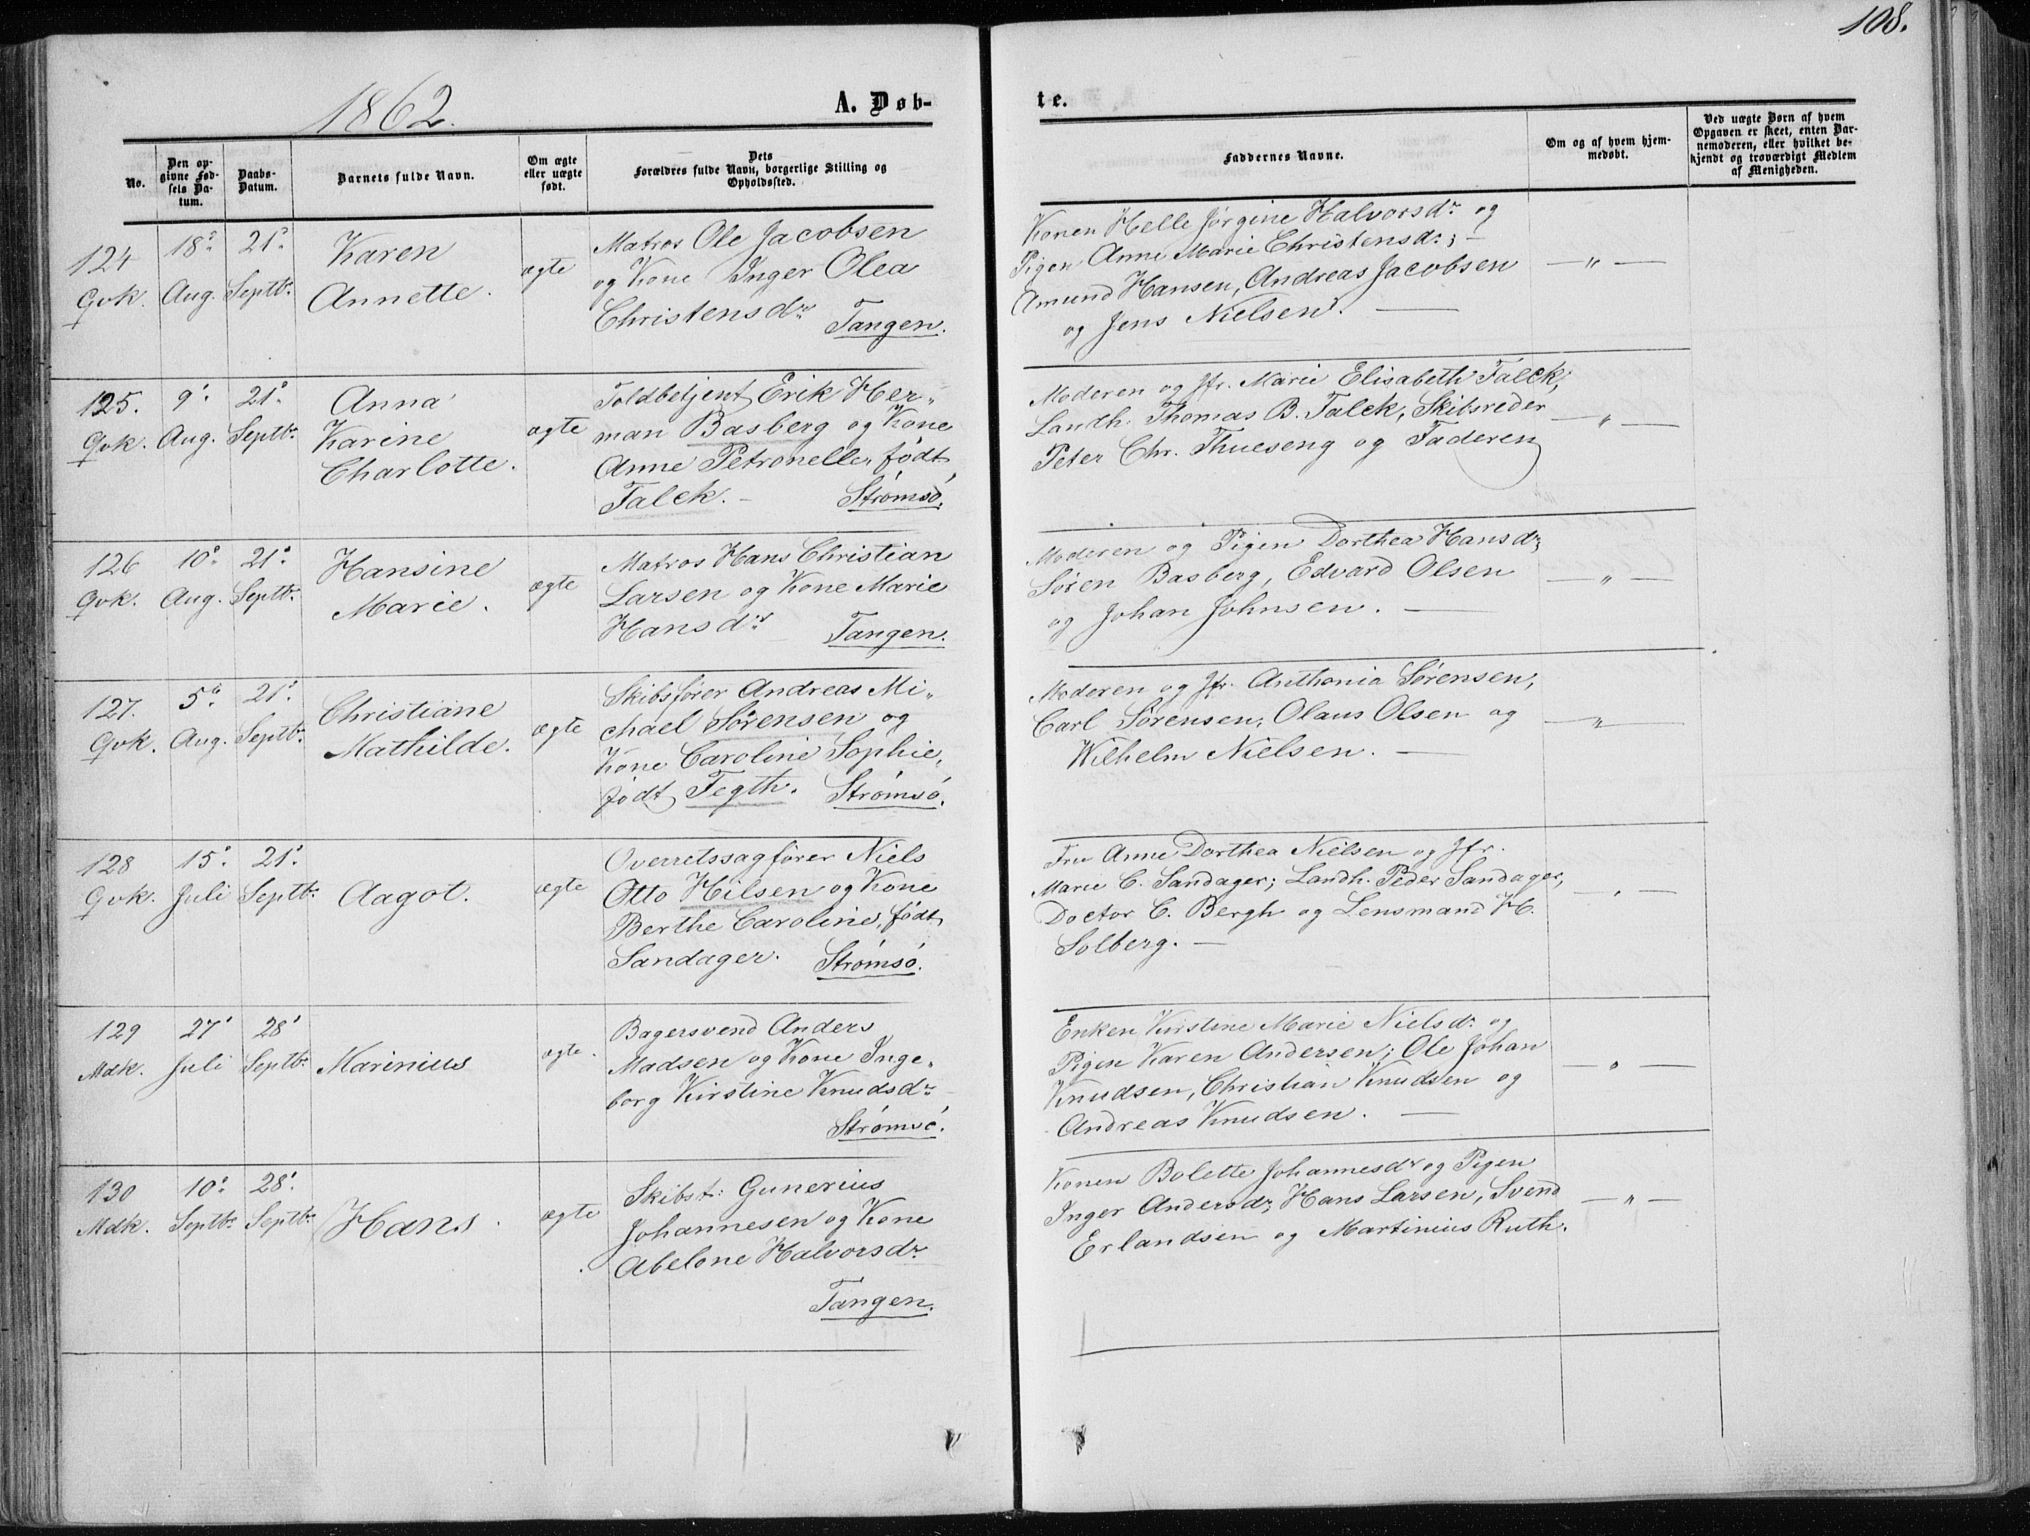 108.
1862.
A. Døb-
te.
No.
Den op-
givne Fød-
sels Da-
tum.
Daabs-
Datum.
Barnets fulde Navn.
Om ægte
eller uægte
født.
Dets
Forældres fulde Navn, borgerlige Stilling og
Opholdssted.
Faddernes Navne.
Om og af hvem hjem-
medøbt.
Ved uægte Børn af hvem
Opgaven er skeet, enten Bar-
nemoderen, eller hvilket be-
kjendt og troværdigt Medlem
af Menigheden.
124
Qvk.
18:
Aug.
21:
Septbr.
Karen
Annette.
ægte
Matros Ole Jacobsen
og Kone Inger Olea
Christensdr Tangen.
Konen Helle Jørgine Halvorsdr og
Pigen Anne Marie Christensdr; —
Amund Hansen, Andreas Jacobsen
og Jens Nielsen. —
— „ —
125.
Qvk.
9:
Aug.
21:
Septbr
Anna
Karine
Charlotte.
ægte
Toldbetjent Erik Her-
man Basberg og Kone
Anne Petronelle, født
Falck. — Strømsö.
Moderen og Jfr. Marie Elisabeth Falck,
Landh. Thomas B. Falck, Skibsreder
Peter Chr. Thueseng og Faderen
— „ —
126
Qvk.
10:
Aug.
21:
Septbr.
Hansine
Marie.
ægte
Matros Hans Christian
Larsen og Kone Marie
Hansdr Tangen.
Moderen og Pigen Dorthea Hansdr;
Søren Basberg, Edvard Olsen
og Johan Johnsen. —
— „ —
127.
Qvk.
5:
Aug.
21:
Septbr.
Christiane
Mathilde.
ægte
Skibsfører Andreas Mi-
chael Sørensen og
Kone Caroline Sophie,
født Fegth. Strømsö.
Moderen og Jfr. Anthonia Sørensen,
Carl Sørensen, Olaus Olsen og
Wilhelm Nielsen. —
— „ —
128
Qvk.
15:
Juli
21:
Septbr.
Aagot.
ægte
Overretssagfører Niels
Otto Hilsen og Kone
Berthe Caroline, født
Sandager. Strømsö.
Fru Anne Dorthea Nielsen og Jfr.
Marie C. Sandager; Landh. Peder Sandager,
Doctor C. Bergh og Lensmand H.
Solberg. —
— „ —
129
Mdk.
27:
Juli
28:
Septbr
Marinius
ægte.
Bagersvend Anders
Madsen og Kone Inge-
borg Kirstine Knudsdr
Strømsö.
Enken Kirstine Marie Nielsdr og
Pigen Karen Andersen; Ole Johan
Knudsen, Christian Knudsen og
Andreas Knudsen. —
— „ —
130
Mdk.
10:
Septbr
28:
Septbr
Hans.
ægte
Skibst: Gunerius
Johannesen og Kone
Abelone Halvorsdr
Tangen.
Konen Bolette Johannesdr og Pigen
Inger Andersdr; Hans Larsen, Svend
Erlandsen og Martinius Ruth.
— „ —